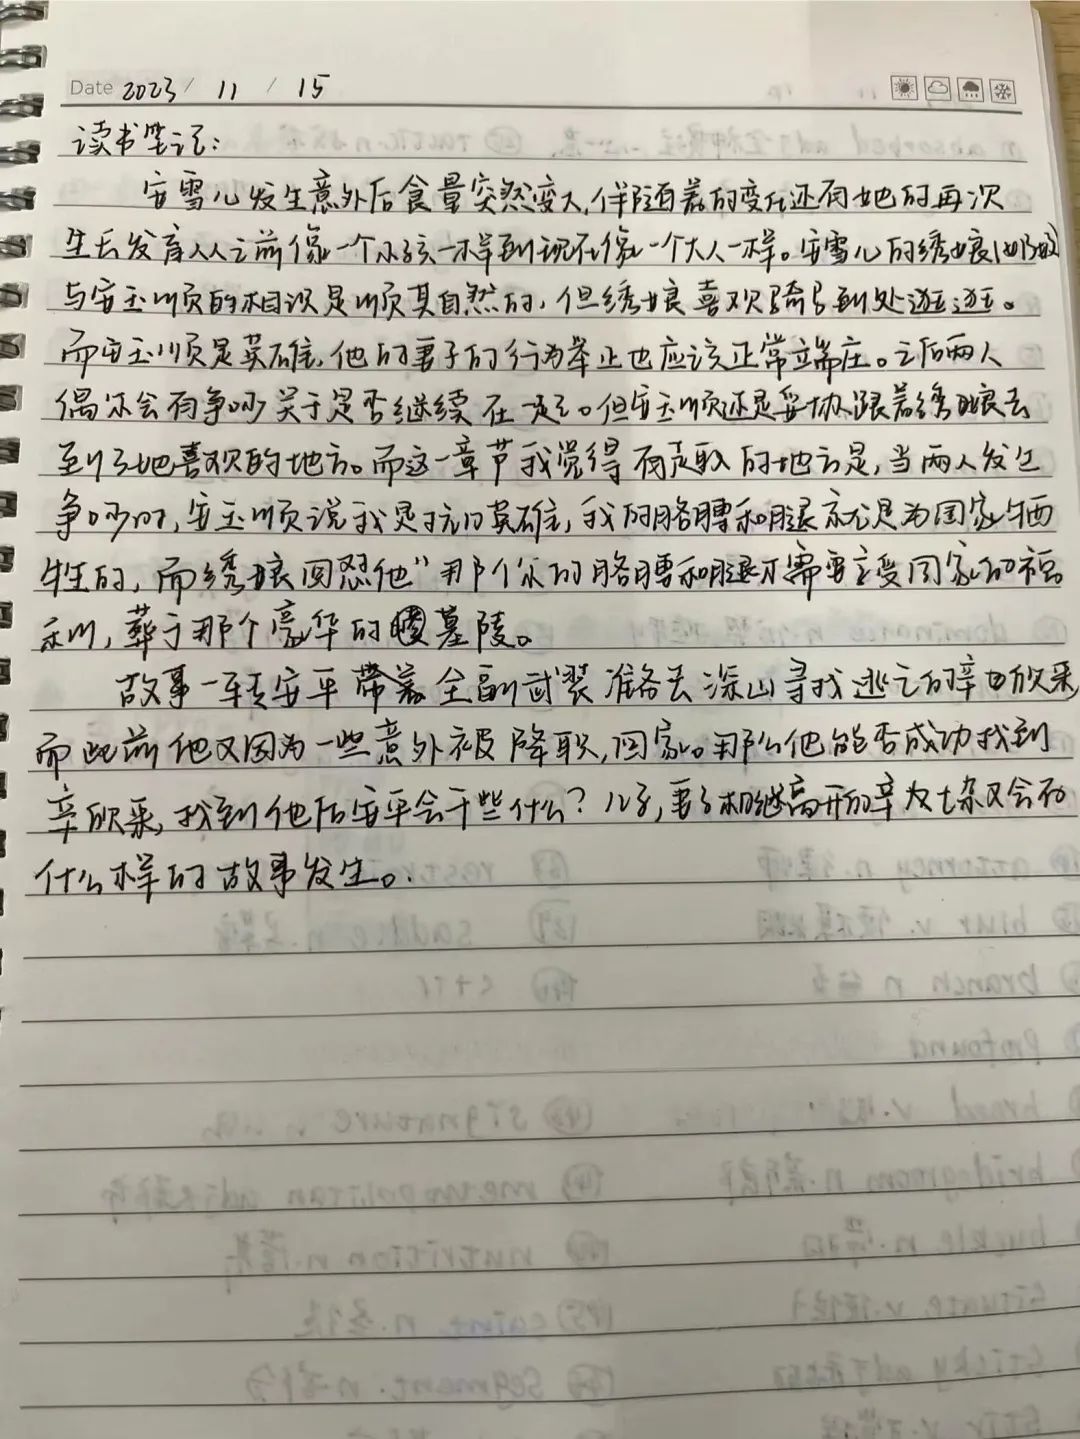 Date 2023 / 11 / 15
读书笔记：
安雪儿发生意外后食量突然变大，伴随着的变化还有她的再次
生长发育从之前像一个小孩一样到现在像一个大人一样。安雪儿的绣娘(奶奶)
与安玉顺的相识是顺其自然的，但绣娘喜欢骑马到处逛逛。
而安玉顺是英雄，他的妻子的行为举止也应该正常端庄。之后两人
偶尔会有争吵关于是否继续在一起。但安玉顺还是妥协跟着绣娘去
到了她喜欢的地方。而这一章节我觉得有趣的地方是，当两人发生
争吵时，安玉顺说我是抗日英雄，我的胳膊和腿就是为国家牺
牲的，而绣娘回怼他"那个你的胳膊和腿才需要享受国家的福
利，葬于那个豪华的墓陵。
故事一转安平带着全副武装准备去深山寻找逃亡的辛欣来
而此前他又因为一些意外被降职，回家。那么他能否成功找到
辛欣来，找到他后安平会干些什么？儿子，妻子相继离开的辛七杂又会有
什么样的故事发生。